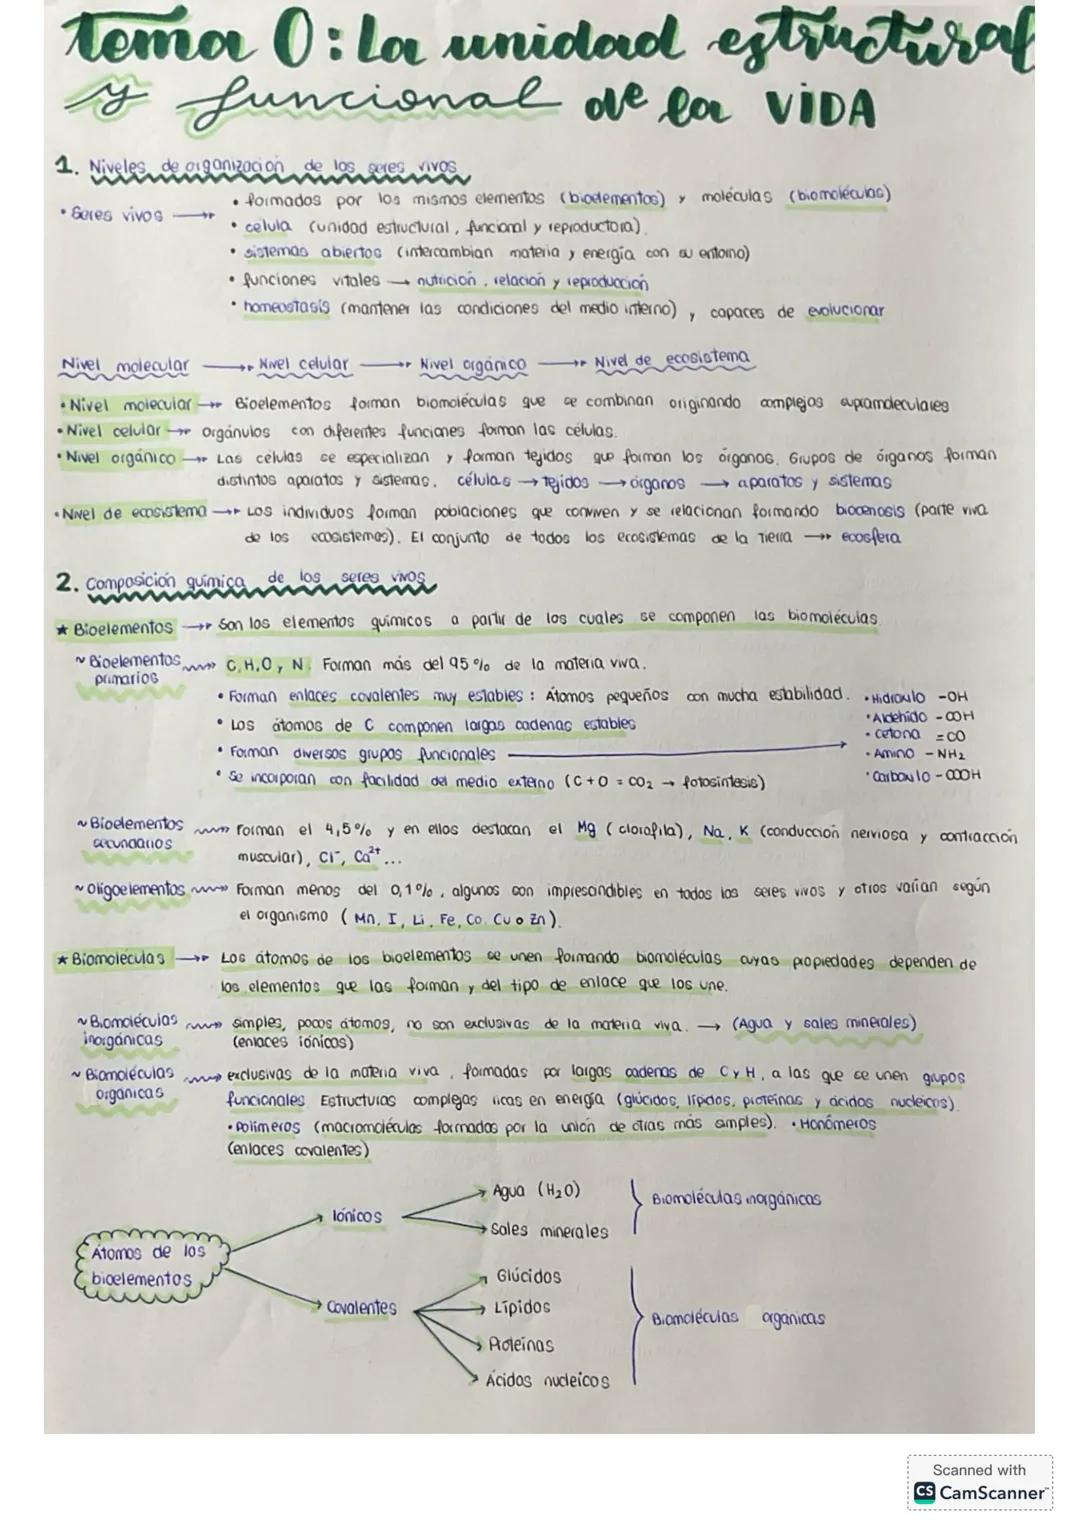 tema 0: La unidad estructural
y funcional de la VIDA
1. Niveles de organización de los seres vivos
• Seres vivos → • formados por los mismos elementos (bioelementos) y moléculas (biomoléculas)
• célula (unidad estructural, funcional y reproductora).
• sistemas abiertos (intercambian materia y energía con su entorno)
• funciones vitales → nutrición, relación y reproducción
• homeostasis (mantener las condiciones del medio interno), capaces de evolucionar
Nivel molecular → Nivel celular → Nivel orgánico → Nivel de ecosistema
• Nivel molecular → Bioelementos forman biomoléculas que se combinan originando complejos supramoleculares
• Nivel celular → orgánulos con diferentes funciones forman las células.
• Nivel orgánico → Las células se especializan y forman tejidos que forman los órganos. Grupos de órganos forman
distintos aparatos y sistemas. células → tejidos → órganos → aparatos y sistemas
• Nivel de ecosistema → Los individuos forman poblaciones que conviven y se relacionan formando biocenosis (parte viva
de los ecosistemas). El conjunto de todos los ecosistemas de la Tierra → ecosfera
2. Composición química de los seres vivos
★ Bioelementos → Son los elementos químicos a partir de los cuales se componen las biomoléculas
~ Bioelementos primarios → C, H, O y N. Forman más del 95% de la materia viva.
• Forman enlaces covalentes muy estables: Átomos pequeños con mucha estabilidad.
• Los átomos de C componen largas cadenas estables
• Forman diversos grupos funcionales →
• Se incorporan con facilidad del medio externo (C+O = CO₂ → fotosíntesis)
• Hidroxilo -OH
• Aldehído -COH
• cetona =CO
• Amino -NH₂
• Carboxilo -COOH
~ Bioelementos secundarios → Forman el 4,5% y en ellos destacan el Mg (clorofila), Na, K (conducción nerviosa y contracción
muscular), Cl⁻, Ca²⁺...
~ Oligoelementos → Forman menos del 0,1%, algunos son imprescindibles en todos los seres vivos y otros varían según
el organismo (Mn, I, Li, Fe, Co, Cu o Zn).
★ Biomoléculas → Los átomos de los bioelementos se unen formando biomoléculas cuyas propiedades dependen de
los elementos que las forman y del tipo de enlace que los une.
~ Biomoléculas inorgánicas → simples, pocos átomos, no son exclusivas de la materia viva. → (Agua y sales minerales)
(enlaces iónicos)
~ Biomoléculas orgánicas → exclusivas de la materia viva, formadas por largas cadenas de C y H, a las que se unen grupos
funcionales. Estructuras complejas ricas en energía (glúcidos, lípidos, proteínas y ácidos nucleicos).
• Polímeros (macromoléculas formadas por la unión de otras más simples). • Monómeros
(enlaces covalentes)
Átomos de los
bioelementos
Iónicos
Agua (H₂O)
Sales minerales
Biomoléculas inorgánicas
Covalentes
Glúcidos
Lípidos
Proteínas
Ácidos nucleicos
Biomoléculas organicas
Scanned with
CS CamScanner